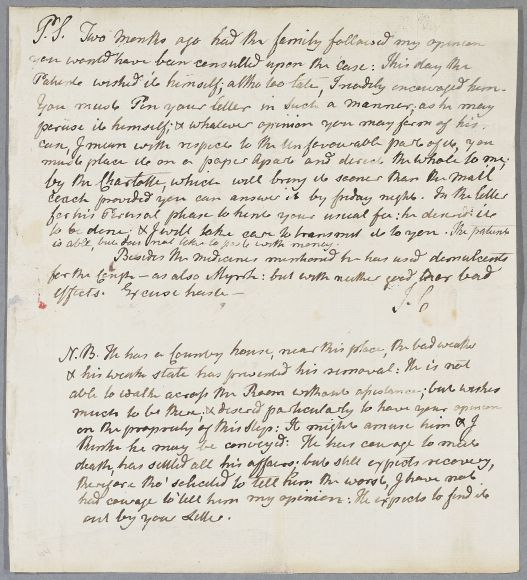 P.S. Two months ago had the family followed my opinion
you would have been consulted upon the case: This day the
Patient wished it himself; altho too late, I readily encouraged him.
You must Pen your letter in such a manner, as he may
peruse it himself; & whatever opinion you may form of his
case, I mean with respect to the Unfavourable part of it, you
must place it on a paper apart and direct the whole to me;
by the Charlotte, which will bring it sooner than the Mail
Coach provided you can answer it by friday night. In the letter
for his Perusal please to hint your usual fee: he desired it
to be done, & I will take care to transmit it to you. The patient
is able, but does not like to part with money.
Besides the medicines mentioned he has used demulcents
for the Cough - as also Myrrh: but with neither good nor bad
effects. Excuse haste -
J. C
N.B. He has a Country house, near this place, the bad weather
& his weak state has prevented his removal: He is not
able to walk across the Room without assistance; but wishes
much to be there, & desired particularly to have your opinion
on the propriety of this step: It might amuse him & I
think he may be conveyed: He has courage to meet
death, has settled all his affairs; but still expects recovery,
therefore tho' solicited to tell him the worst, I have not
had courage to tell him my opinion: He expects to find it
out by your Letter.